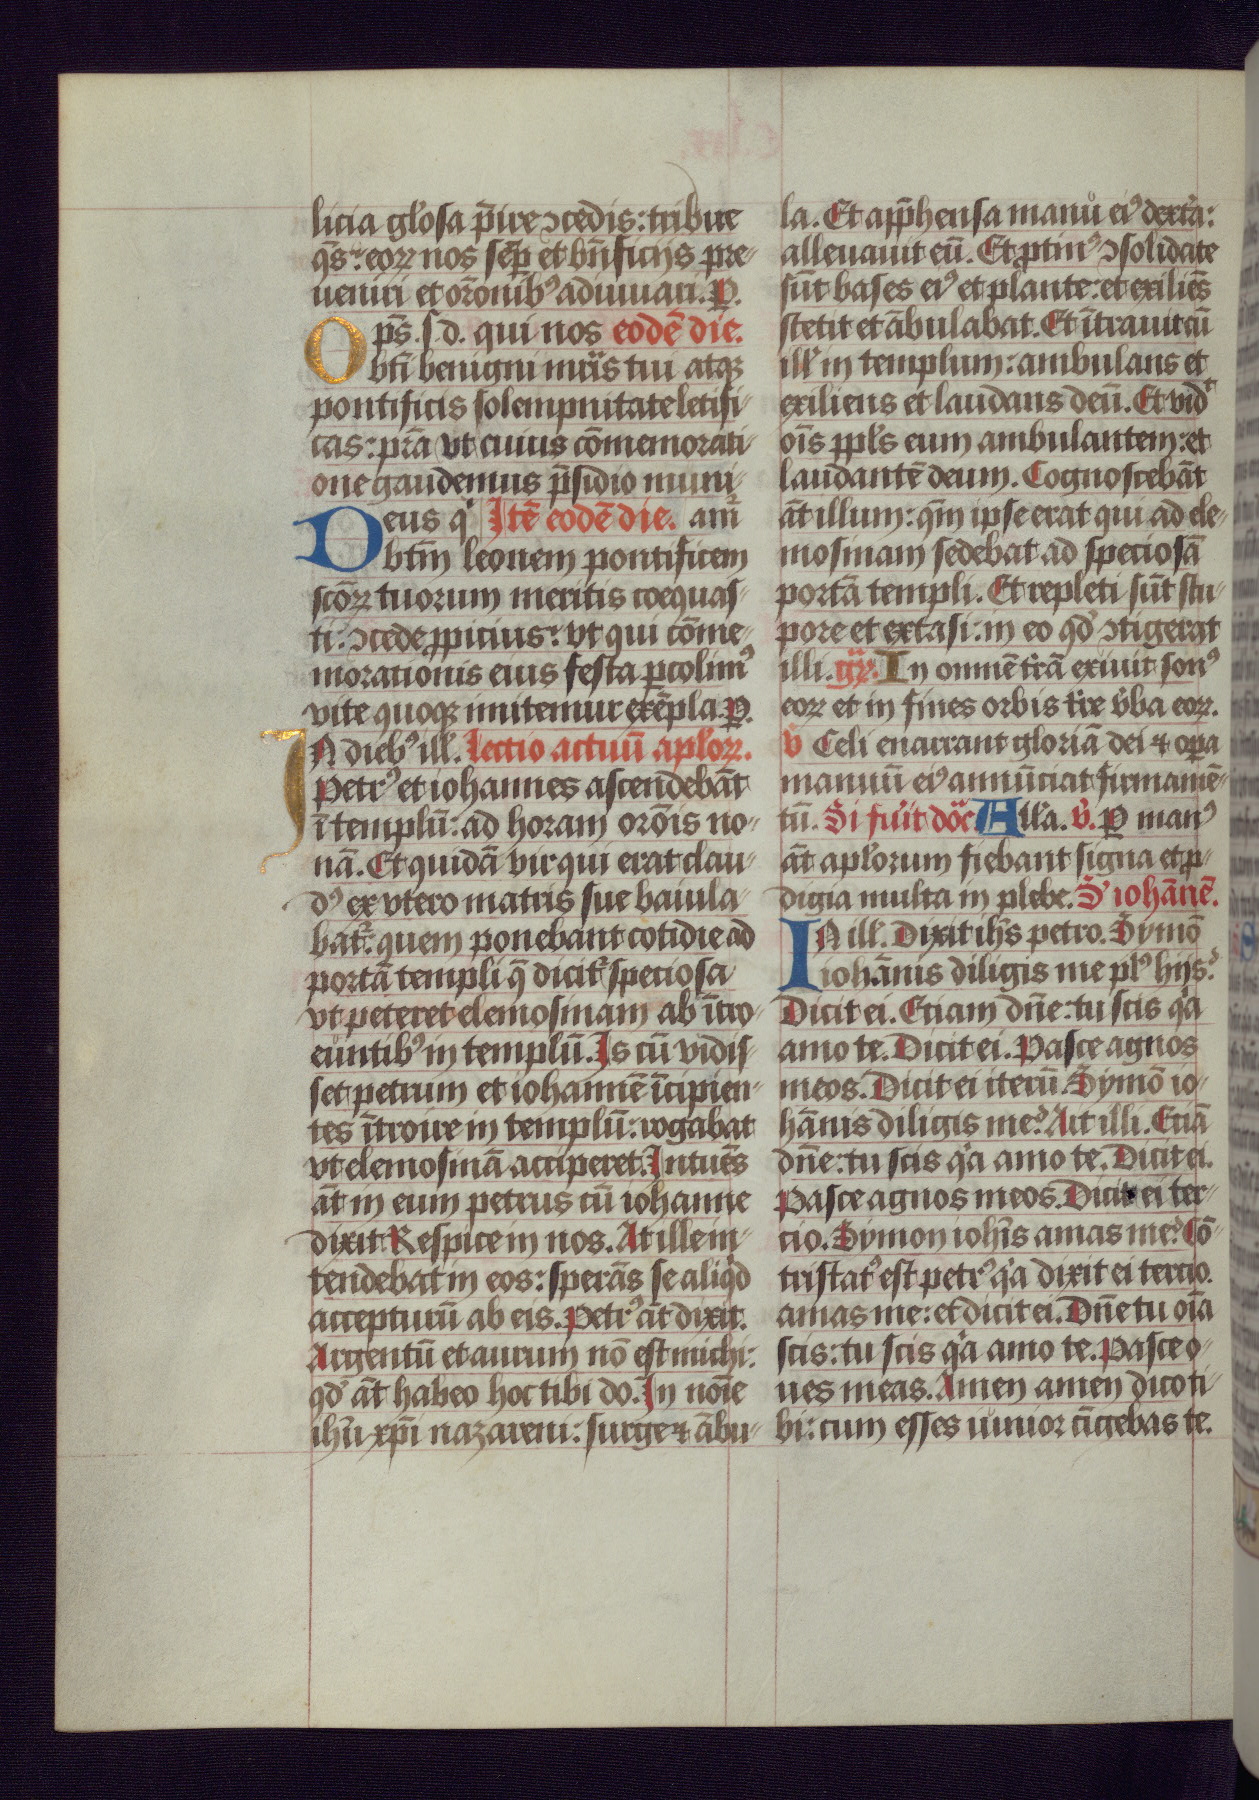 licia gl'osa p̄ire ꝯcedis: tribue
q̄s: eoꝝ nos sēp et bn̄ficijs pre-
ueniri et or̄onib᷒ adiuuari. P.
Op̄s. s d. qui nos eodē die.
bt̄i benigni mr̄is tui atqꝫ
pontificis solempnitate letifi-
cas: pr̄a vt cuius cōmemorati-
one gaudemus p̄sidio muni-
Deus q' Itē eodē die. am̄r
bt̄m leonem pontificem
scōꝝ tuorum meritis coequas-
ti: ꝯcede ꝓpicius: vt qui cōme-
morationis eius festa ꝑcolim᷒
vite quoqꝫ imitemur exēpla. P.
IN dieb᷒ ill'. Lectio actuū apl'oꝝ.
Petr᷒ et iohannes ascendebāt
ī templū: ad horam orōis no-
nā. Et quidā vir qui erat clau-
d᷒ ex vtero matris sue baiula-
bat᷑: quem ponebant cotidie ad
portā templi q̄ dicit᷑ speciosa
vt peteret elemosinam ab ītro-
euntib᷒ in templū. Is cū vidis-
set petrum et iohannē īcipien-
tes ītroire in templū: rogabat
vt elemosinā acciperet. Intuēs
āt in eum petrus cū iohanne
dixit Respice in nos. At ille in-
tendebat in eos: sperās se aliq'd
accepturū ab eis. Petr᷒ āt dixit.
Argentū et aurum nō est michi:
qd' āt habeo hoc tibi do. In noīe
ihū xp̄i nazareni: surge ⁊ ābu-
la. Et app̄hensa manu ei᷒ dext'a:
alleuauit eū. Et ꝓtin᷒ ꝯsolidate
sūt bases ei᷒ et plante: et exiliēs
stetit et ābulabat. Et ītrauit cū
ill' in templum: ambulans et
exiliens et laudans deū. Et vid't
oīs ppl's eum ambulantem: et
laudantē deum. Cognoscebāt
āt illum: qm̄ ipse erat qui ad ele-
mosinam sedebat ad speciosā
portā templi. Et repleti sūt stu-
pore et extasi: in eo qd' ꝯtigerat
illi. gr̄. In omnē t'rā exiuit son᷒
eoꝝ et in fines orbis t're v'ba eoꝝ.
v̄ Celi enarrant gloriā dei ⁊ oꝑa
manuū ei᷒ annūciat firmamē-
tū. Si fu'it dōc All'a. v̄. P man᷒
āt apl'orum fiebant signa et ꝓ-
digia multa in plebe. S' iohānē.
IN ill'. Dixit ihs̄ petro. Symō
iohānis diligis me pl᷒ hijs?
Dicit ei. Etiam dn̄e: tu scis q'a
amo te. Dicit ei. Pasce agnos
meos. Dicit ei iterū. Symō io-
hānis diligis me? Ait illi. Etiā
dn̄e: tu scis q'a amo te. Dicit ei.
Pasce agnos meos. Dicit ei ter-
cio. Symon ioh̄is amas me? Cō-
tristat᷒ est petr᷒ q'a dixit ei tercio.
amas me: et dicit ei. Dn̄e tu oīa
scis: tu scis q'a amo te. Pasce o-
ues meas. Amen amen dico ti-
bi: cum esses iunior cīgebas te.